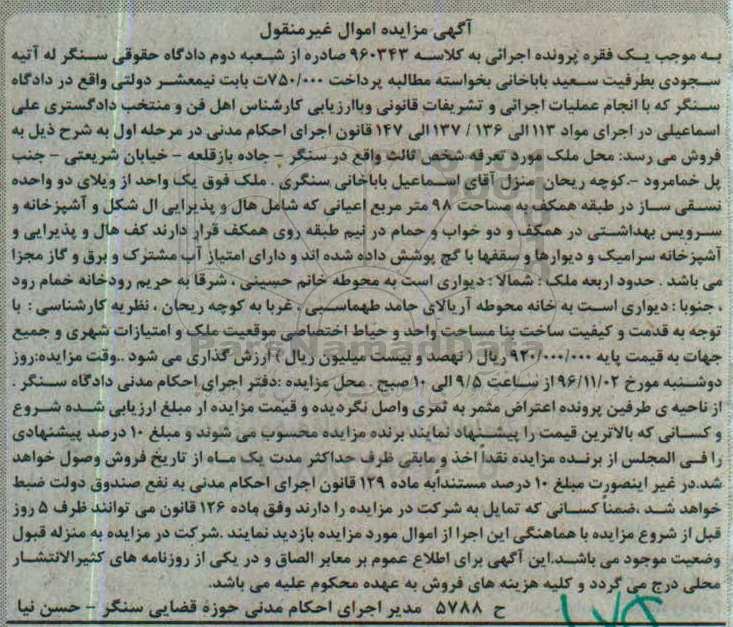 آگهی مزایده اموال غیرمنقول
به موجب یک فقره پرونده اجرائی به کلاسه ۹۶۰۳۴۳ صادره از شعبه دوم دادگاه حقوقی سنگر له آتیه
سجودی بطرفیت سعید باباخانی بخواسته مطالبه پرداخت ۷۵۰/۰۰۰ت بابت نیمعشر دولتی واقع در دادگاه
سنگر که با انجام عملیات اجرائی و تشریفات قانونی وباارزیابی کارشناس اهل فن و منتخب دادگستری علی
اسماعیلی در اجرای مواد ۱۱۳ الی ۱۳۶ / ۱۳۷ الی ۱۴۷ قانون اجرای احکام مدنی در مرحله اول به شرح ذیل به
فروش می رسد: محل ملک مورد تعرفه شخص ثالث واقع در سنگر - جاده بازقلعه - خیابان شریعتی - جنب
پل خمامرود -.کوچه ریحان منزل آقای اسماعیل باباخانی سنگری . ملک فوق یک واحد از ویلای دو واحده
نسقی ساز در طبقه همکف به مساحت ۹۸ متر مربع اعیانی که شامل هال و پذیرایی ال شکل و آشپزخانه و
سرویس بهداشتی در همکف و دو خواب و حمام در نیم طبقه روی همکف قرار دارند کف هال و پذیرایی و
آشپزخانه سرامیک و دیوارها و سقفها با گچ پوشش داده شده اند و دارای امتیاز آب مشترک و برق و گاز مجزا
می باشد . حدود اربعه ملک : شمالا : دیواری است به محوطه خانم حسینی ، شرقا به حریم رودخانه خمام رود
، جنوبا : دیواری است به خانه محوطه آریالای حامد طهماسبی ، غربا به کوچه ریحان ، نظریه کارشناسی : با
توجه به قدمت و کیفیت ساخت بنا مساحت واحد و حیاط اختصاصی موقعیت ملک و امتیازات شهری و جمیع
جهات به قیمت پایه ۹۲۰/۰۰۰/۰۰۰ ریال ( نهصد و بیست میلیون ریال ) ارزش گذاری می شود ..وقت مزایده:روز
دوشنبه مورخ ۹۶/۱۱/۰۲ از ساعت ۹/۵ الی ۱۰ صبح . محل مزایده :دفتر اجرای احکام مدنی دادگاه سنگر .
از ناحیه ی طرفین پرونده اعتراض مثمر به ثمری واصل نگردیده و قیمت مزایده از مبلغ ارزیابی شده شروع
و کسانی که بالاترین قیمت را پیشنهاد نمایند برنده مزایده محسوب می شوند و مبلغ ۱۰ درصد پیشنهادی
را فی المجلس از برنده مزایده نقداً اخذ و مابقی ظرف حداکثر مدت یک ماه از تاریخ فروش وصول خواهد
شد.در غیر اینصورت مبلغ ۱۰ درصد مستندابه ماده ۱۲۹ قانون اجرای احکام مدنی به نفع صندوق دولت ضبط
خواهد شد .ضمناً کسانی که تمایل به شرکت در مزایده را دارند وفق ماده ۱۲۶ قانون می توانند ظرف ۵ روز
قبل از شروع مزایده با هماهنگی این اجرا از اموال مورد مزایده بازدید نمایند .شرکت در مزایده به منزله قبول
وضعیت موجود می باشد.این آگهی برای اطلاع عموم بر معابر الصاق و در یکی از روزنامه های کثیرالانتشار
محلی درج می گردد و کلیه هزینه های فروش به عهده محکوم علیه می باشد.
ح ۵۷۸۸ مدیر اجرای احکام مدنی حوزه قضایی سنگر - حسن نیا
ParsNamadData